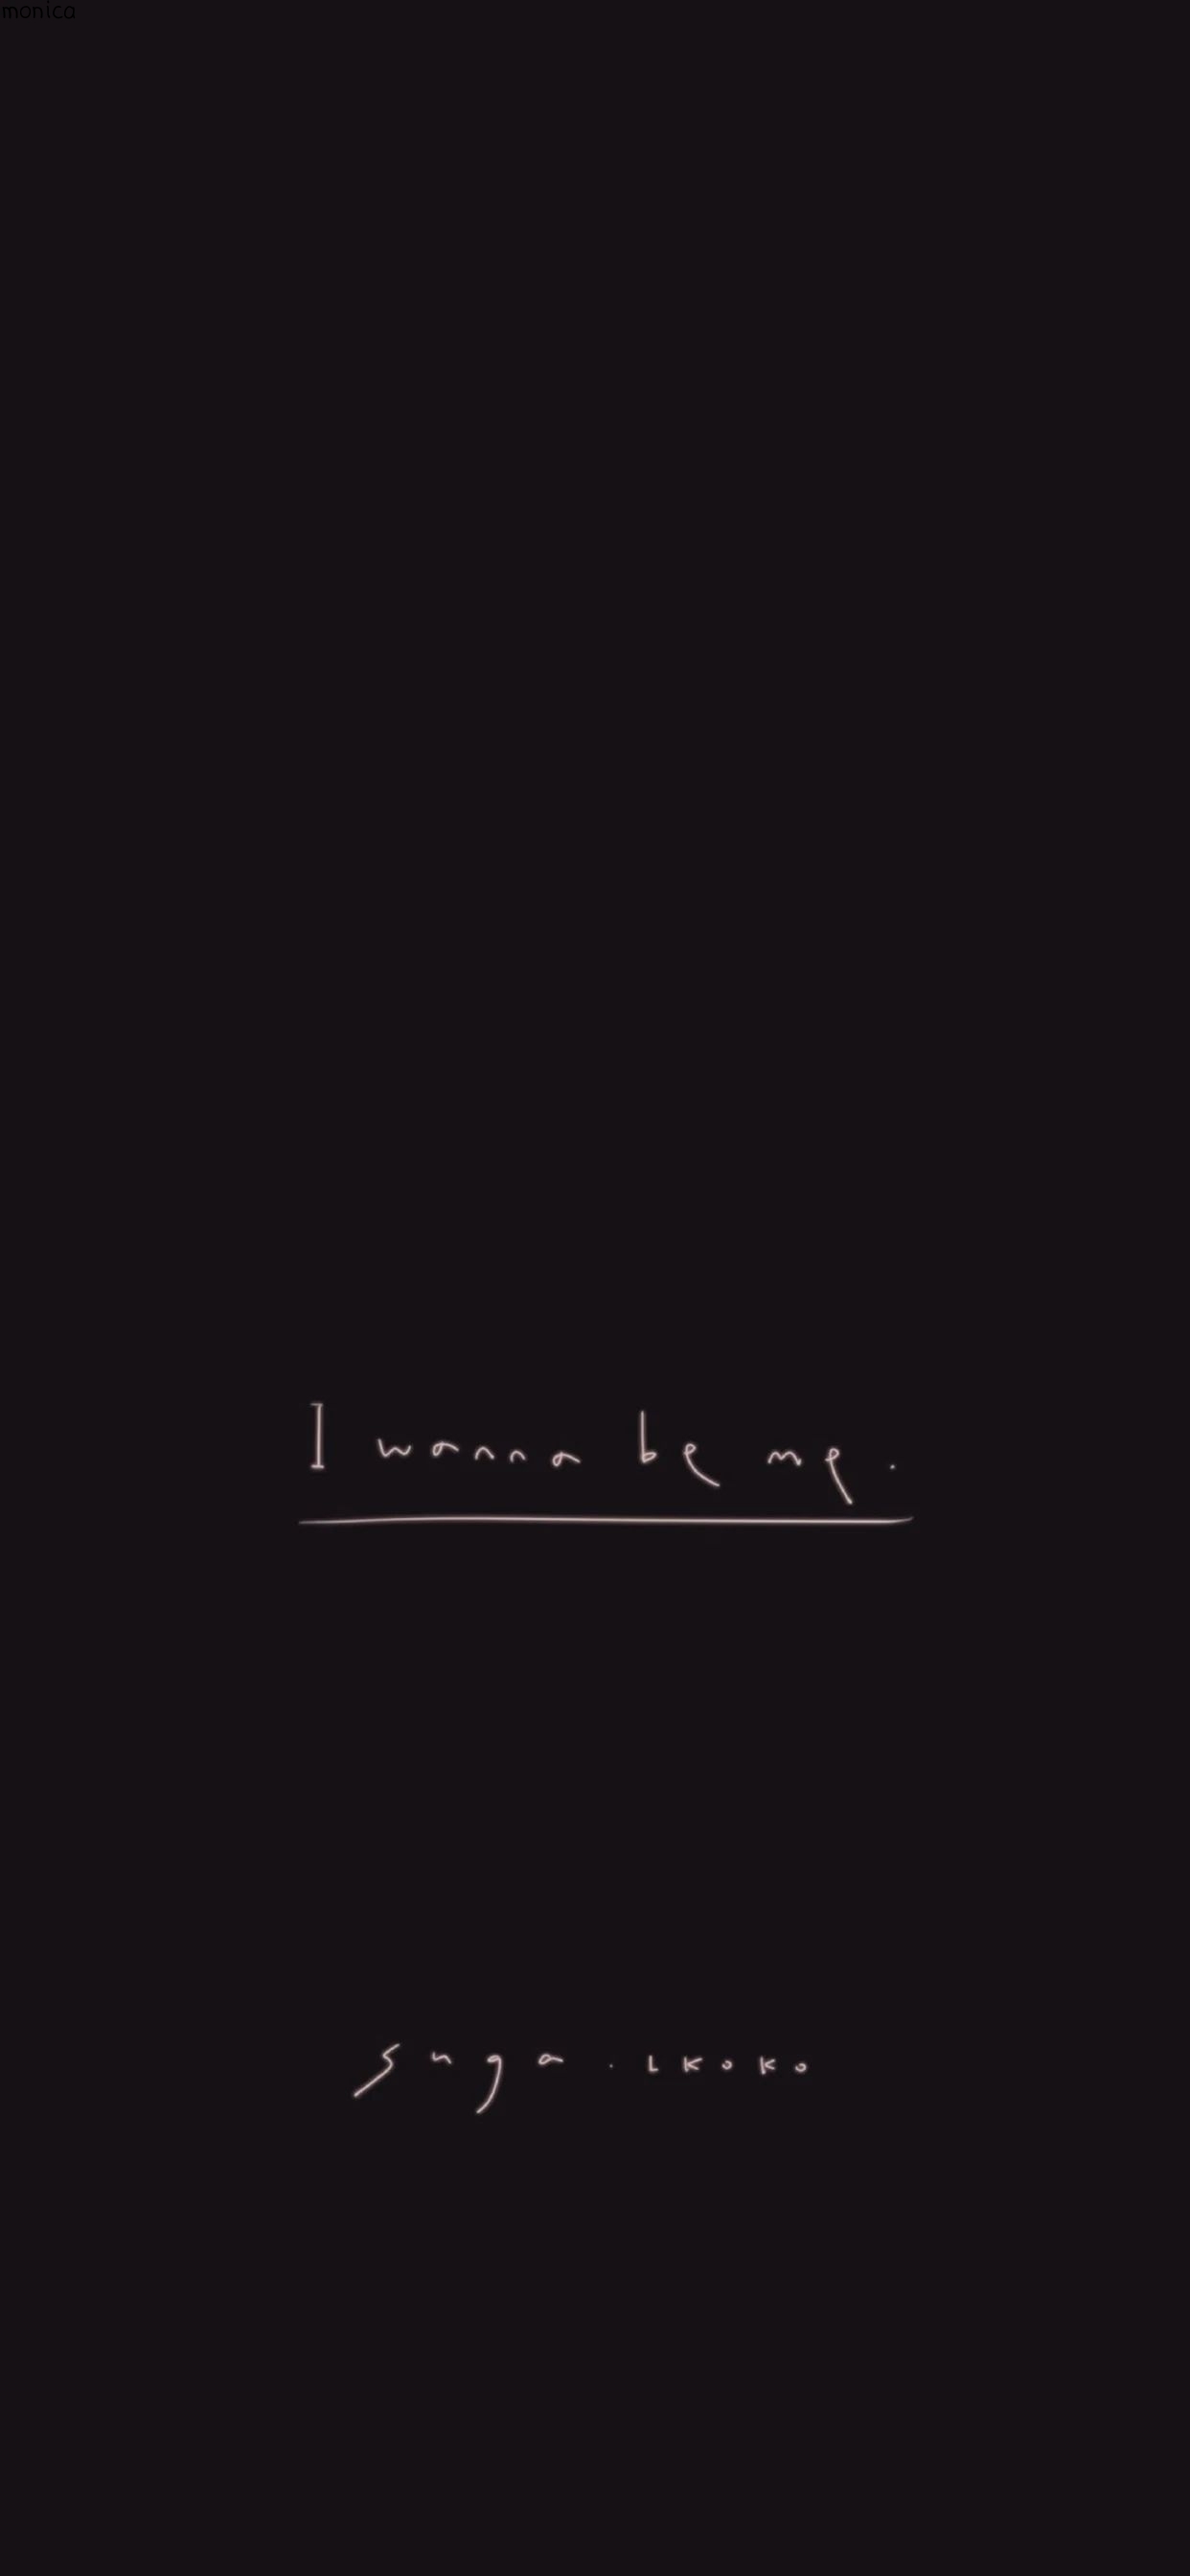 monica
I wanna be me.
suga.LKOKO